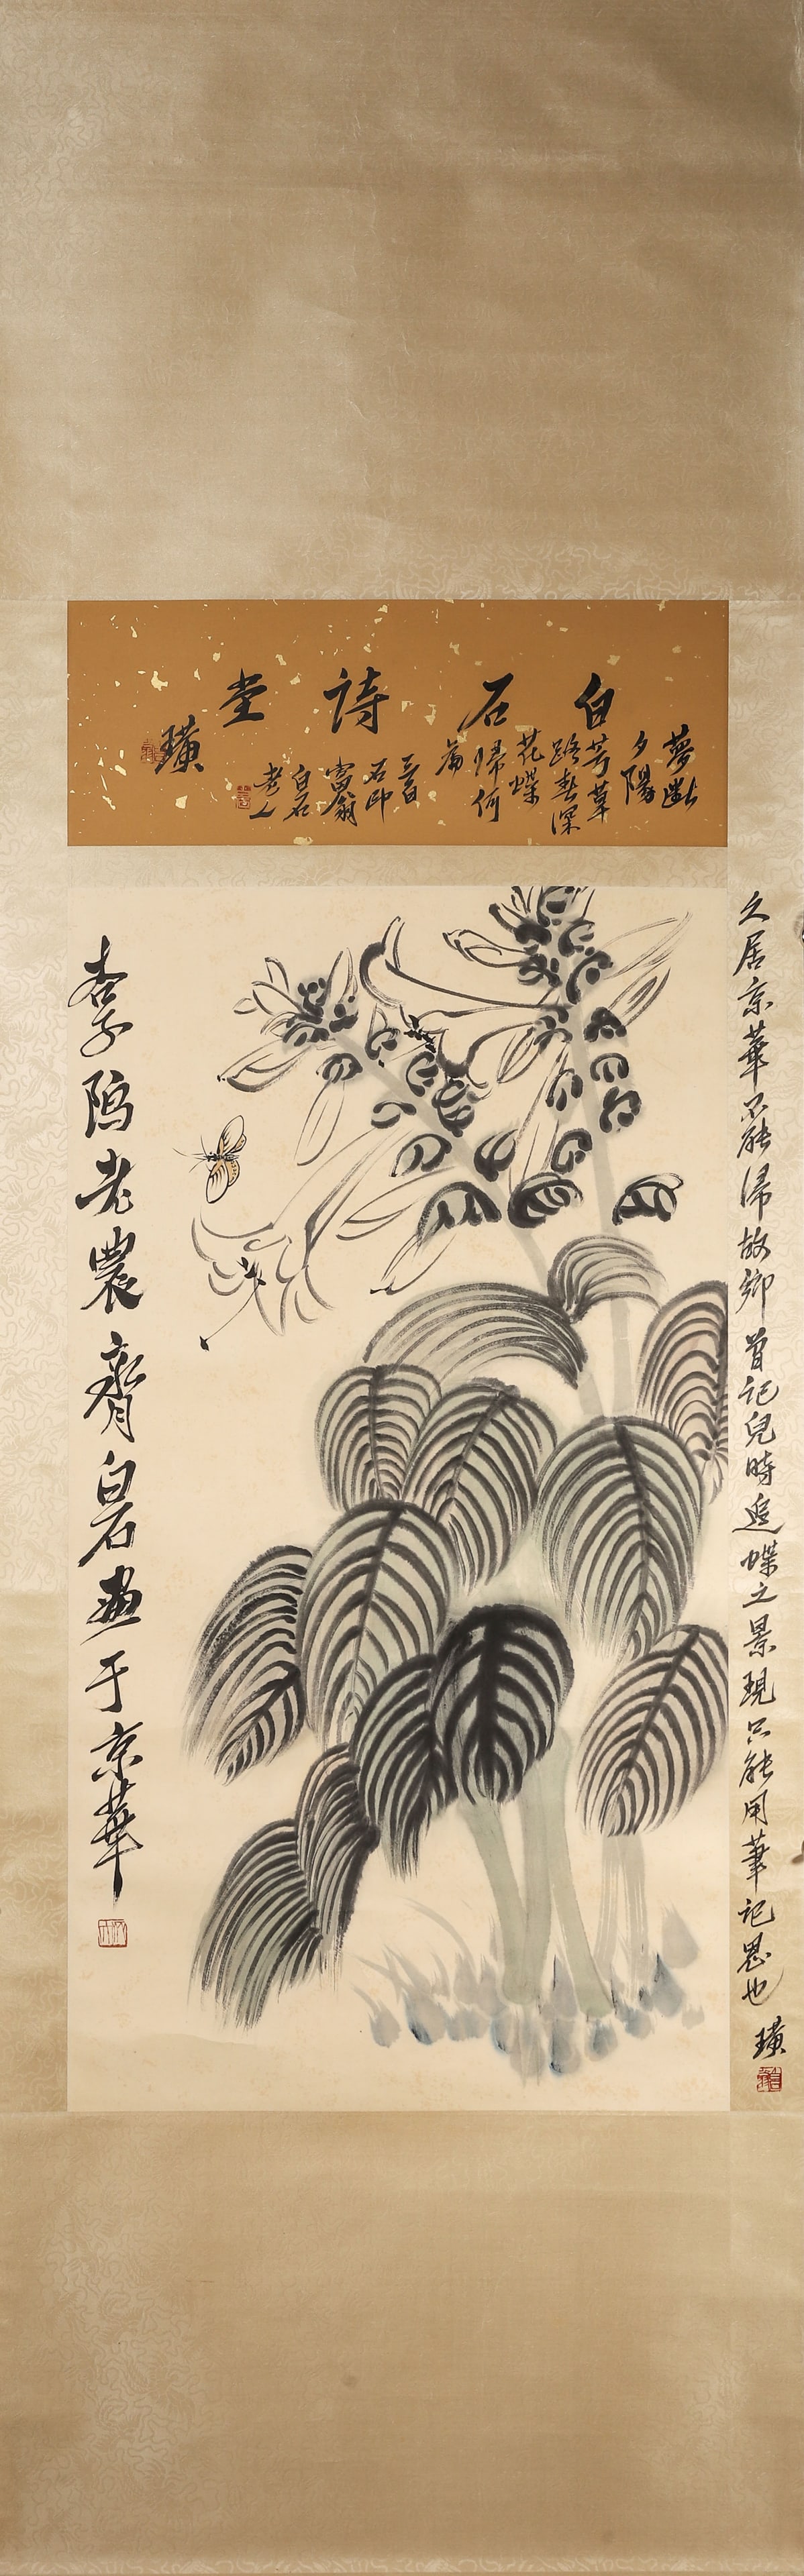 白石詩堂
夢斷
夕陽
芳草
路 深
花蝶
歸何
三百
石印
富翁
白石
老人
璜
久居京華 能歸故鄉曾記兒時追蝶之景現只能用筆記思也
璜
杏子隖老農齊白石畫于京華